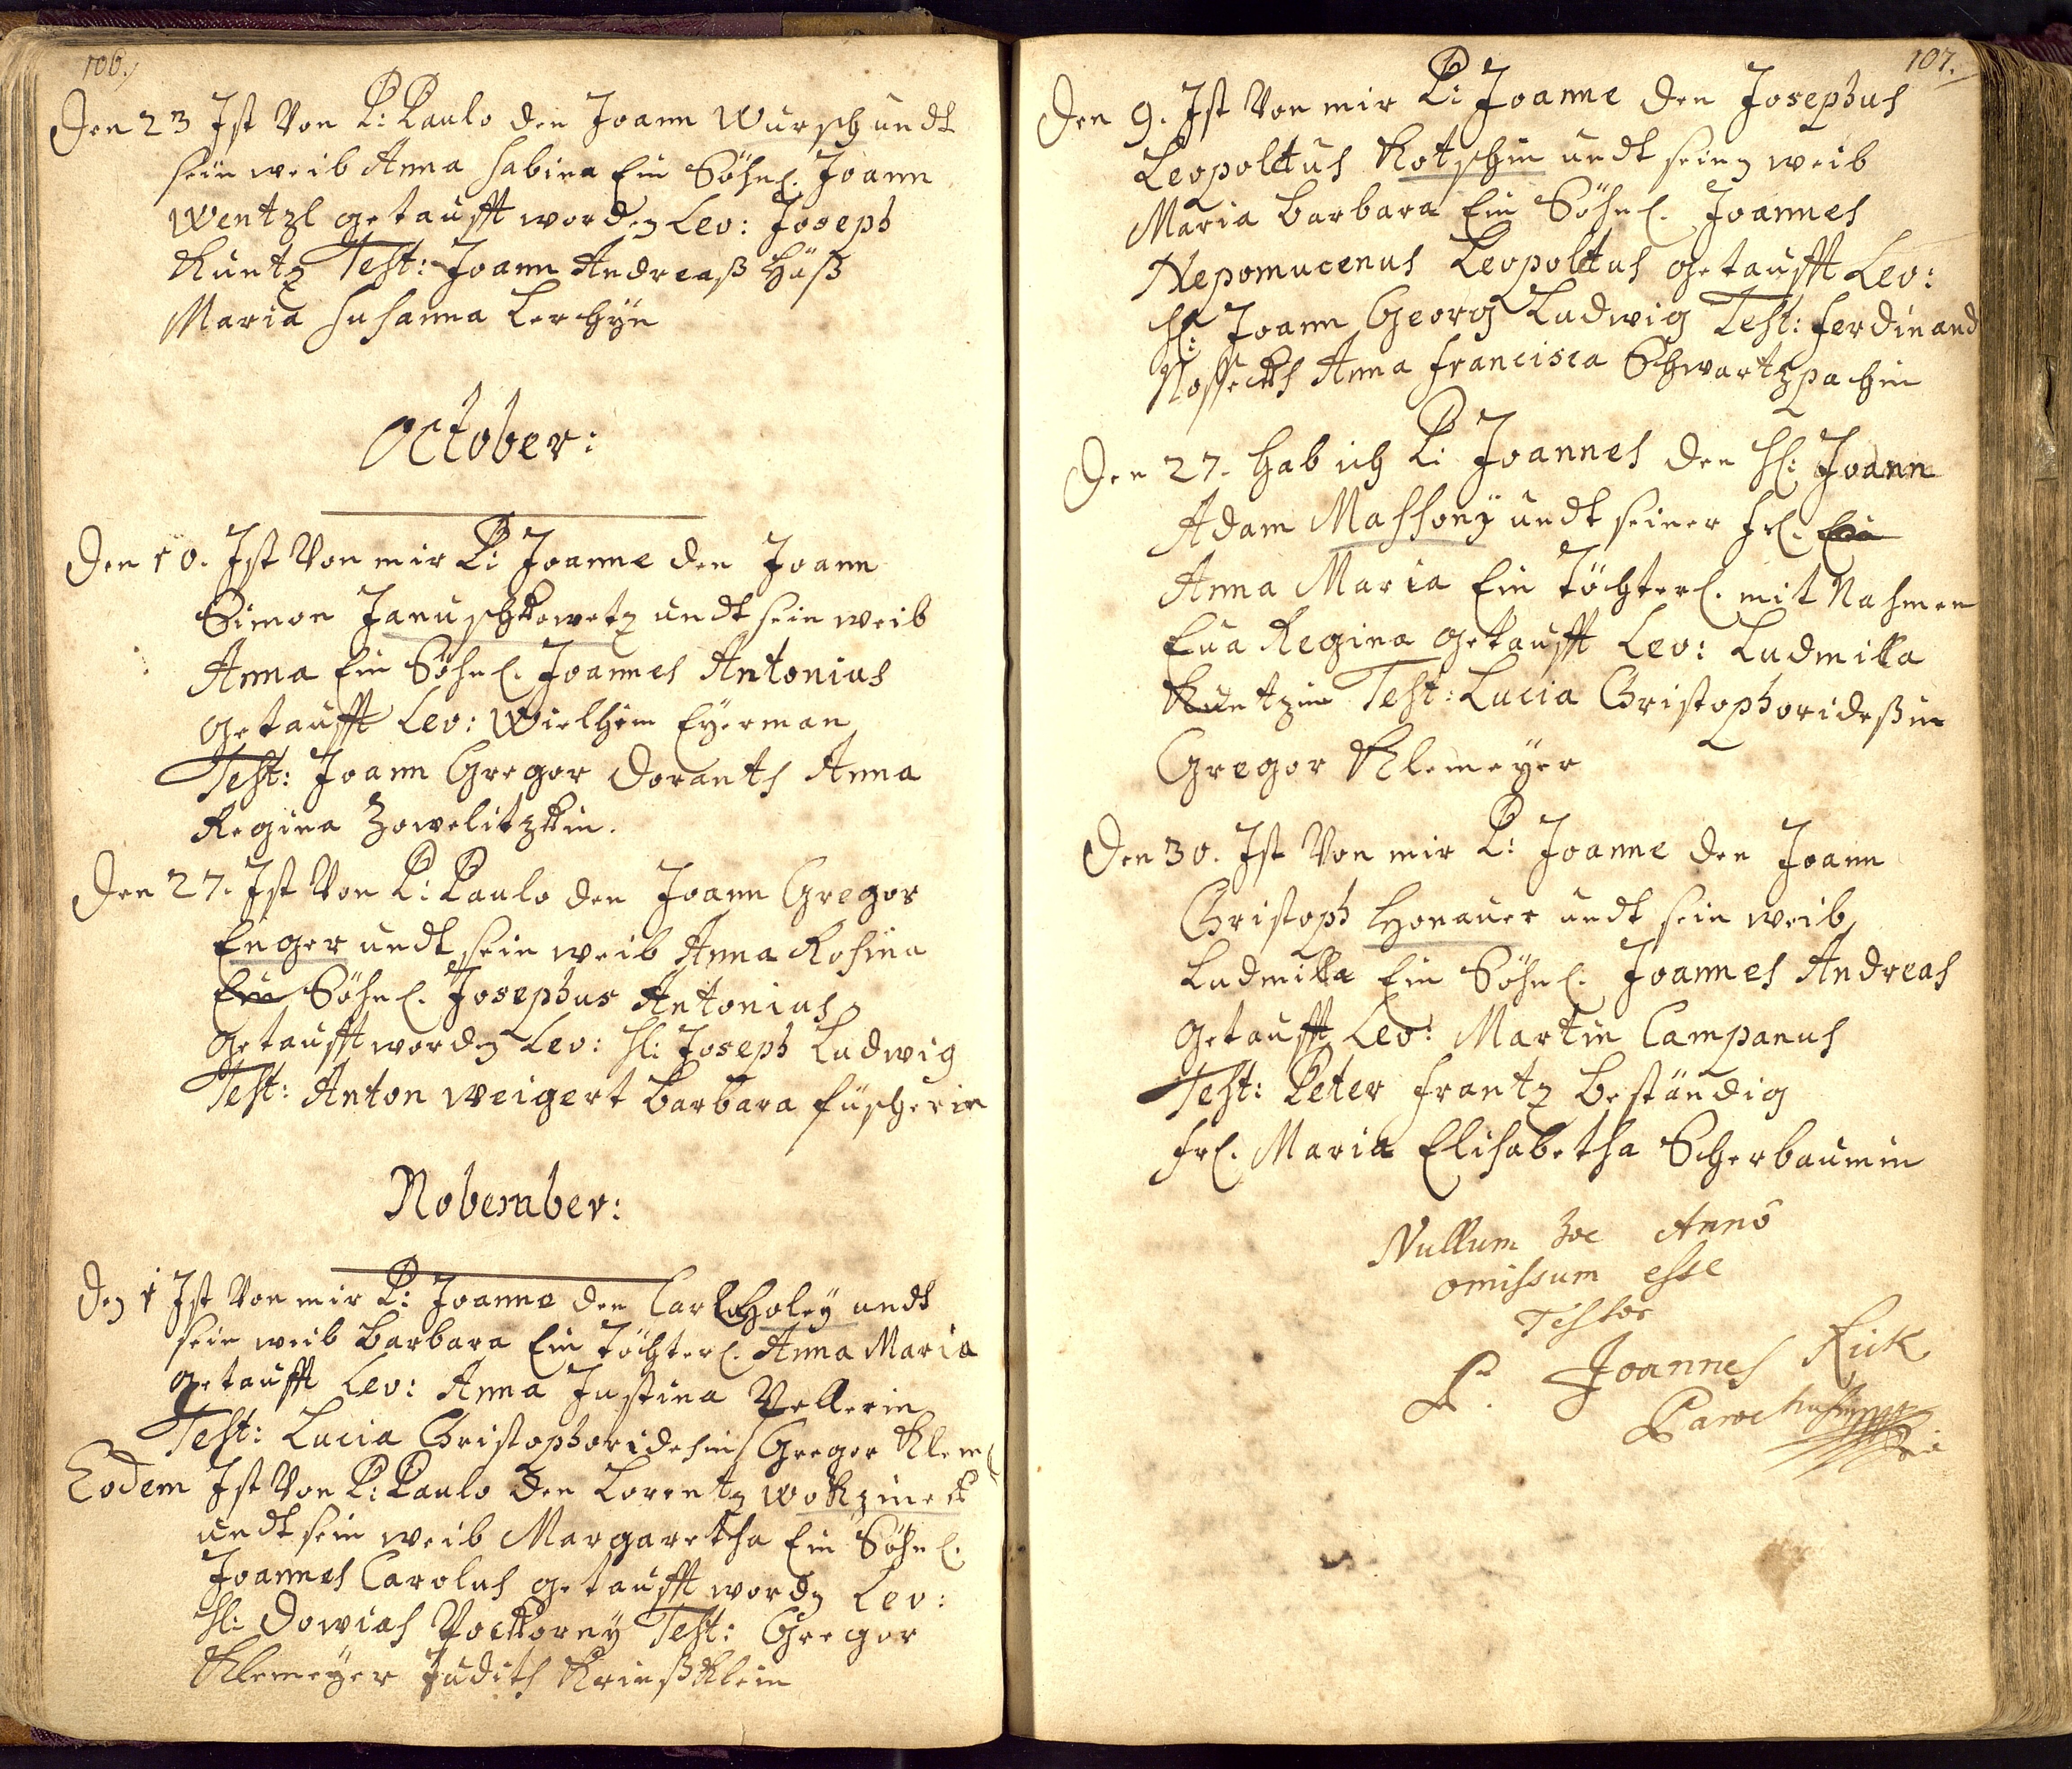 106.
Den 23 Ist Von P: Paulo den Joann Wursch undt
sein weib Anna Sabina Ein Söhnl. Joann
Wentzl getaufft worden Lev: Joseph
Kuntz Test: Joann Andreaß Häß
Maria Susanna Lerchÿn
October:
Den 10. Ist Von mir P: Joanne den Joann
Simon Januschkowetz undt sein weib
Anna Ein Söhnl. Joannes Antonius
getaufft Lev: Wielhem Eÿerman
Test: Joann Gregor Doranth Anna
Regina Zowelitzkin.
Den 27. Ist Von P: Paulo den Joann Gregor
Enger undt sein weib Anna Rosina
Ein Söhnl. Josephus Antonius
getaufft worden Lev: Hl: Joseph Ludwig
Test: Anton Weigert Barbara füscherin
Nobember:
Den 1 Ist Von mir P: Joanne den Carl Holeÿ undt
sein weib Barbara Ein Töchterl. Anna Maria
getaufft Lev: Anna Justina Vellerin
Test: Lucia Christophoridesin Gregor Klem
Eodem Ist Von P: Paulo den Lorentz Wokzineck
undt sein weib Margaretha Ein Söhnl.
Joannes Carolus getaufft worden Lev:
Hl: Dowias Pockorny Test: Gregor
Klemeÿer Judith Krinßklein
107.
Den 9. Ist Von mir P: Joanne den Josephus
Leopoldus Kotschin undt seinen weib
Maria Barbara Ein Söhnl. Joannes
Nepomucenus Leopoldus getaufft Lev:
Hl: Joann Georg Ludwig Test: Ferdinand
Nosseckh Anna Francisca Schwartzpachin
Den 27. hab ich P: Joannes den Hl: Joann
Adam Massonÿ undt seiner Frl. Ein
Anna Maria Ein Töchterl. mit Nahmen
Eua Regina getaufft Lev: Ludmilla
Kuntzin Test: Lucia Christophorideßin
Gregor Klemeÿer
Den 30. Ist Von mir P: Joanne den Joann
Christoph Honauer undt sein weib
Ludmilla Ein Söhnl. Joannes Andreas
getaufft Lev: Martin Campanus
Test: Peter Frantz Beständig
Frl. Maria Elisabetha Scherbaumin
Nullum hoc Anno
omissum esse
Testor
P. Joannes Rick
Parochus